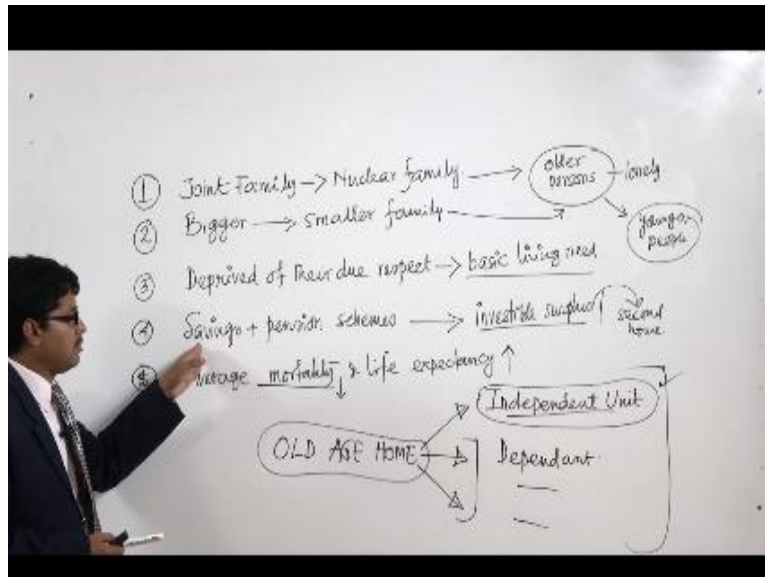 ① Joint Family → Nuclear family → older persons – lonely
younger people
② Bigger → smaller family →
③ Deprived of their due respect → basic living need
④ Savings + pension schemes → investible surplus ↑ second home
mortality ↓ & life expectancy ↑
OLD AGE HOME → Independent Unit
Dependant